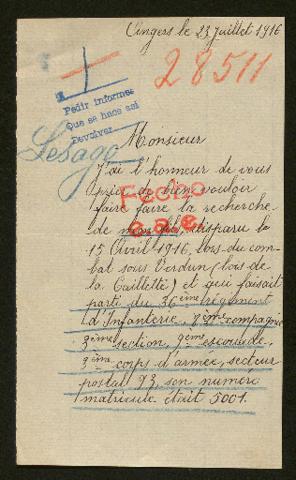 Angers le 23 Juillet 1916
28511
Pedir informes
Que se hace así
Devolver
Lesage
Monsieur
J'ai l'honneur de vous
prier de bien vouloir
faire faire la recherche
de mon fils, disparu le
15 Avril 1916, lors du com-
bat sous Verdun (bois de
la Caillette) et qui faisait
parti du 36ème régiment
d'Infanterie, compagnie
3ème section, 9ème escouade,
3ème corps d'armée, secteur
postal 93, son numéro
matricule était 5001.
Fecho